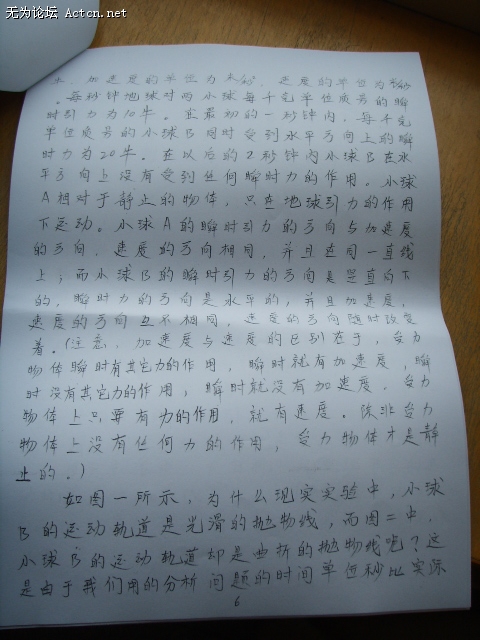 无为论坛 Actcn.net
米，加速度的单位为米/秒²，速度的单位为米/秒
。每秒钟地球对两小球每千克单位质量的瞬
时引力为10牛。在最初的一秒钟内，每千克
单位质量的小球B同时受到水平方向上的瞬
时力为20牛。在以后的2秒钟内小球B在水
平方向上没有受到任何瞬时力的作用。小球
A相对于静止的物体，只在地球引力的作用
下运动。小球A的瞬时引力的方向与加速度
的方向，速度的方向相同，并且在同一直线
上；而小球B的瞬时引力的方向是竖直向下
的，瞬时力的方向是水平的，并且加速度，
速度的方向也不相同，速度的方向随时改变
着。（注意，加速度与速度的区别在于，受力
物体瞬时有其它力的作用，瞬时就有加速度，瞬
时没有其它力的作用，瞬时就没有加速度。受力
物体上只要有力的作用，就有速度。除非受力
物体上没有任何力的作用，受力物体才是静
止的。）
如图一所示，为什么现实实验中，小球
B的运动轨道是光滑的抛物线，而图二中，
小球B的运动轨道却是曲折的抛物线呢？这
是由于我们用的分析问题的时间单位秒比实际
6